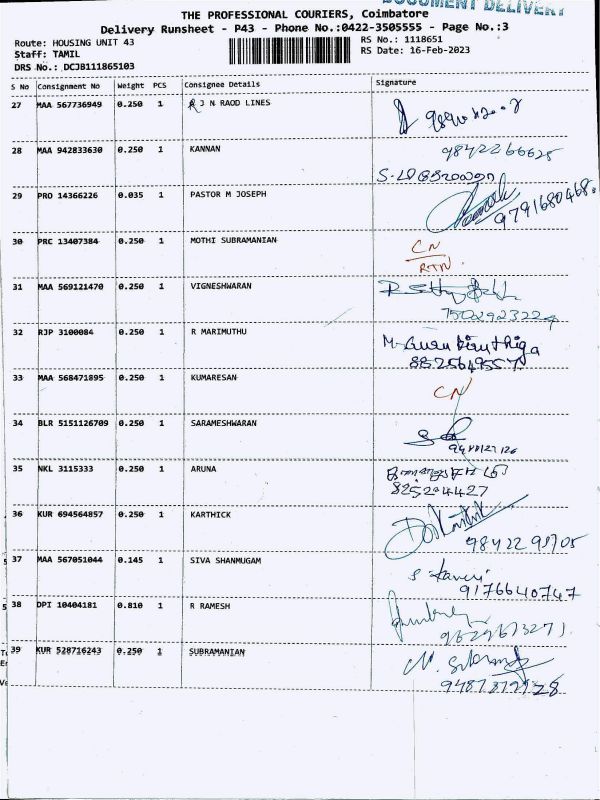 DOCUMENT DELIVERY
THE PROFESSIONAL COURIERS, Coimbatore
Delivery Runsheet - P43 - Phone No.:0422-3505555 - Page No.:3
Route: HOUSING UNIT 43
RS No.: 1118651
Staff: TAMIL
RS Date: 16-Feb-2023
DRS No.: DCJB111865103
S No Consignment No Weight PCS Consignee Details Signature
27 MAA 567736949 0.250 1 R J N RAOD LINES
28 MAA 942833630 0.250 1 KANNAN 9842266625
29 PRO 14366226 0.035 1 PASTOR M JOSEPH 9791680468.
30 PRC 13407384 0.250 1 MOTHI SUBRAMANIAN CN
RTN.
31 MAA 569121470 0.250 1 VIGNESHWARAN
7502923224
32 RJP 3100084 0.250 1 R MARIMUTHU
8825649557
33 MAA 568471895 0.250 1 KUMARESAN CN
34 BLR 5151126709 0.250 1 SARAMESHWARAN
35 NKL 3115333 0.250 1 ARUNA
825224427
36 KUR 694564857 0.250 1 KARTHICK
37 MAA 567051044 0.145 1 SIVA SHANMUGAM S Kaveri
9176640747
38 DPI 10404181 0.810 1 R RAMESH
9629673271.
39 KUR 528716243 0.250 1 SUBRAMANIAN